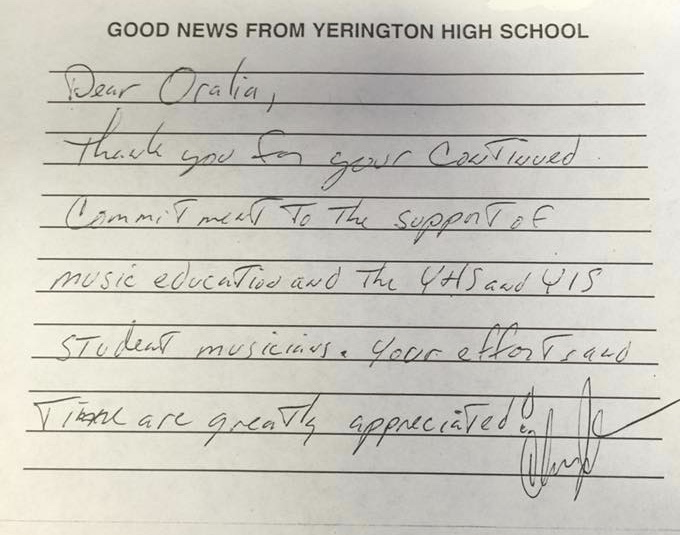 GOOD NEWS FROM YERINGTON HIGH SCHOOL
Dear Oralia,
Thank you for your Continued
Commitment To The support of
music education and The YHS and YIS
student musicians. Your efforts and
Time are greatly appreciated!